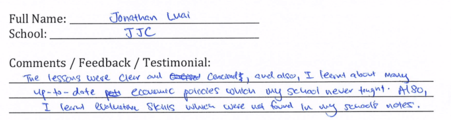 Full Name: Jonathan Luai
School: JJC
Comments / Feedback / Testimonial:
The lessons were clear and concise, and also, I learnt about many
up-to-date economic policies which my school never taught. Also,
I learnt evaluative skills which were not found in my school's notes.